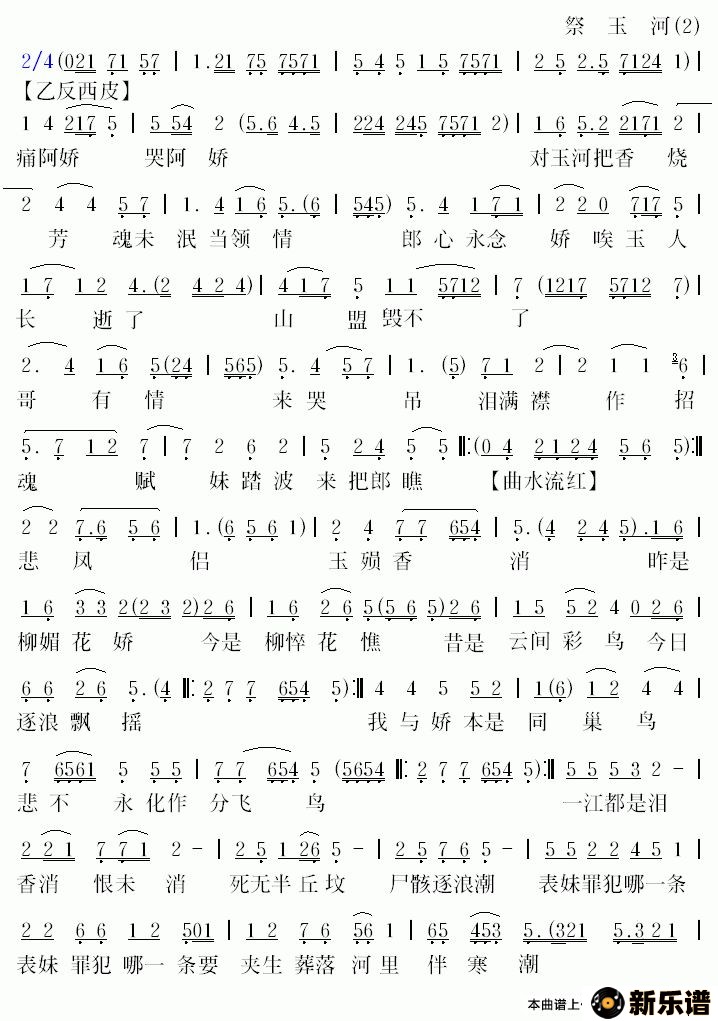 祭 玉 河(2)
2/4(021 71 57 | 1.21 75 7571 | 5 4 5 1 5 7571 | 2 5 2.5 7124 1)|
【乙反西皮】
1 4 217 5 | 5 54 2 (5.6 4.5 | 224 245 7571 2) | 1 6 5.2 2171 2
痛阿娇 哭阿 娇 对玉河把香 烧
2 4 4 5 7 | 1. 4 1 6 5.(6 | 545) 5. 4 1 7 1 | 2 2 0 717 5 |
芳 魂未 泯 当领 情 郎 心 永念 娇 唉 玉 人
1 7 1 2 4.(2 4 2 4)| 4 1 7 5 1 1 5712 | 7 (1217 5712 7)
长 逝了 山 盟 毁不 了
2. 4 1 6 5(24 | 565) 5. 4 5 7 | 1. (5) 7 1 2 | 2 1 1 3 6 |
哥 有 情 来 哭 吊 泪满 襟 作 招
5. 7 1 2 7 | 7 2 6 2 | 5 2 4 5 5 ‖:(0 4 2 1 2 4 5 6 5):‖
魂 赋 妹 踏 波 来 把郎 瞧 【曲水流红】
2 2 7.6 5 6 | 1.(6 5 6 1) | 2 4 7 7 654 | 5.(4 2 4 5).1 6 |
悲 凤 侣 玉 殒 香 消 昨是
1 6 3 3 2(2 3 2)2 6 | 1 6 2 6 5(5 6 5)2 6 | 1 5 5 2 4 0 2 6 |
柳媚 花 娇 今是 柳悴 花 憔 昔是 云间 彩 鸟 今日
6 6 2 6 5.(4 ‖: 2 7 7 654 5):‖ 4 4 5 5 2 | 1(6) 1 2 4 4 |
逐浪 飘 摇 我 与 娇 本是 同 巢 鸟
7 6561 5 5 5 | 7 7 654 5 (5654 ‖: 2 7 7 654 5):‖ 5 5 5 3 2 - |
悲 不 永 化作 分飞 鸟 一江都是泪
2 2 1 7 7 1 2 - | 2 5 1 26 5 - | 2 5 7 6 5 - | 5 5 2 2 4 5 1 |
香消 恨未 消 死无半 丘 坟 尸骸逐浪潮 表妹罪犯哪一条
2 2 6 6 1 2 501 | 1 2 7 6 56 1 | 65 453 5.(321 5.321 |
表妹 罪犯 哪一 条要 夹生 葬落 河 里 伴 寒 潮
本曲谱上 新乐谱